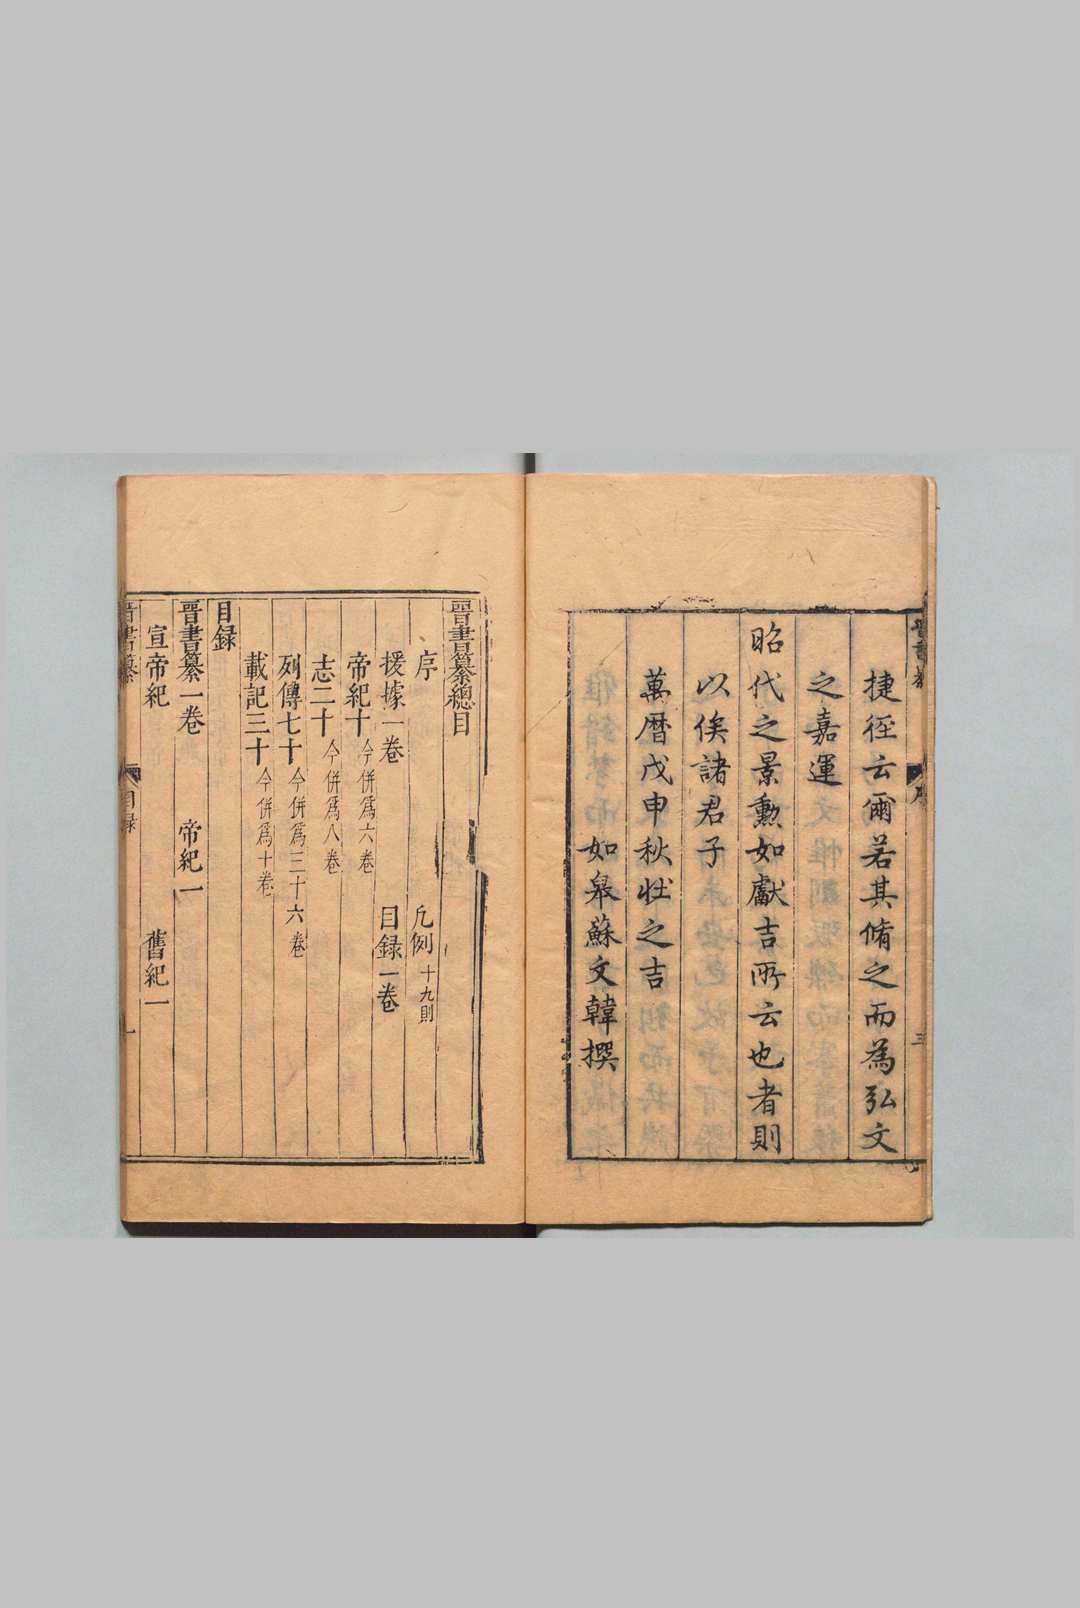 捷徑云爾若其脩之而為弘文
之嘉運
昭代之景勳如獻吉所云也者則
以俟諸君子
萬曆戊申秋壯之吉
如皋蘇文韓撰
晉書纂總目
序 凡例十九則
援據一卷 目録一卷
帝紀十今併爲六卷
志二十今併爲八卷
列傳七十今併爲三十六卷
載記三十今併爲十卷
目録
晉書纂一卷 帝紀一
宣帝紀 舊紀一
晉書纂 目録 一